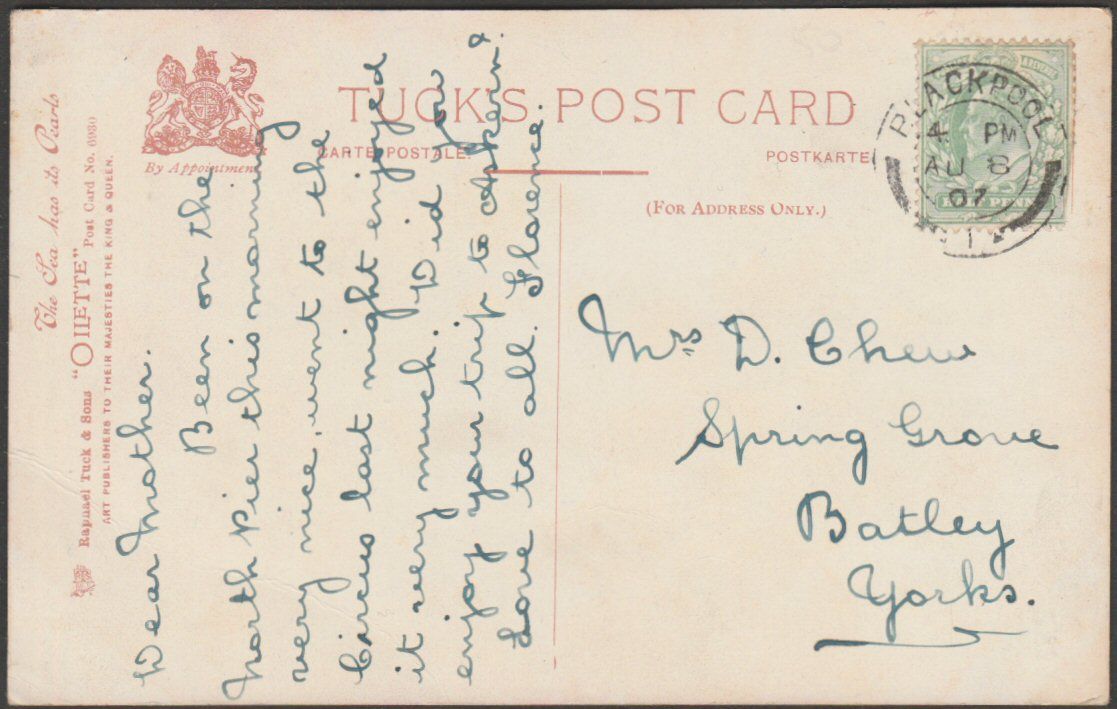 The Sea has its Pearls
Raphael Tuck & Sons "OILETTE" Post Card No. 6980
ART PUBLISHERS TO THEIR MAJESTIES THE KING & QUEEN.
By Appointment
TUCK'S POST CARD
CARTE POSTALE.
POSTKARTE
(FOR ADDRESS ONLY.)
BLACKPOOL
4 PM
AU 8
07
HALF PENNY
Dear Mother.
Been on the
North Pier this morning
very nice, went to the
Circus last night enjoyed
it very much. Did you
enjoy your trip to Askern?
Love to all. Florence.
Mrs D. Chew
Spring Grove
Batley
Yorks.